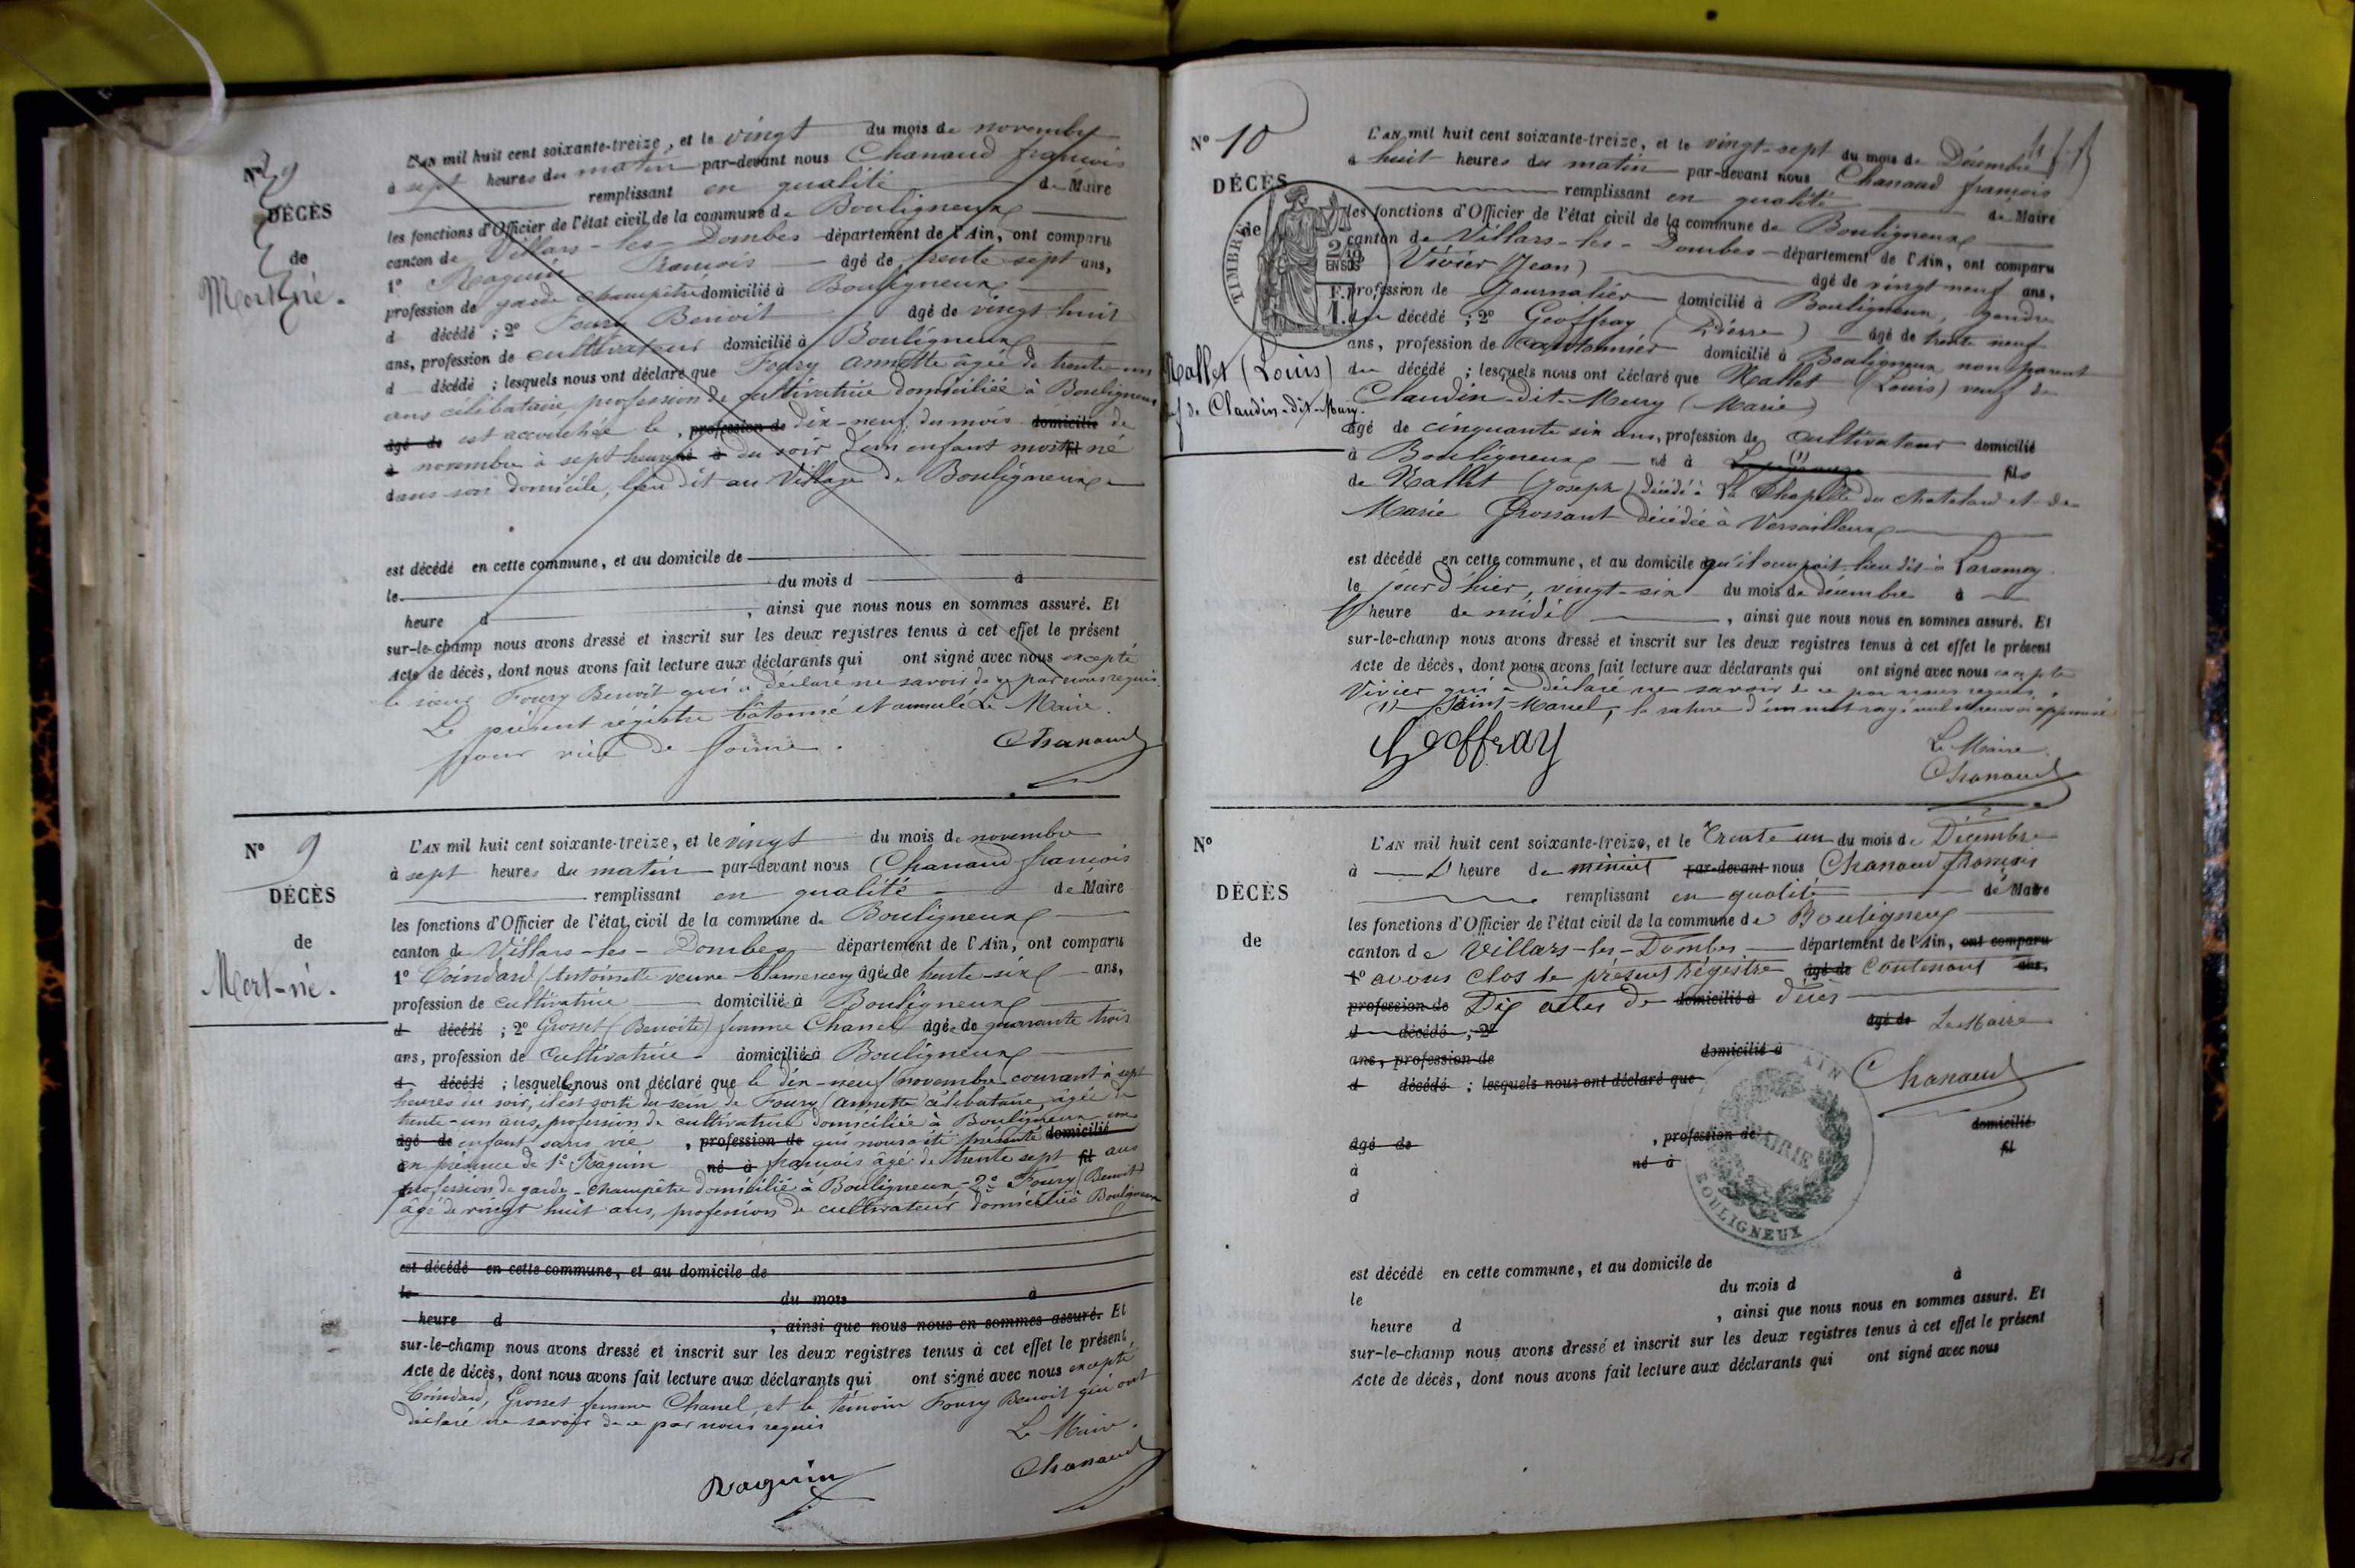 N° 9
DÉCÈS
de
Mort-né.
L'AN mil huit cent soixante-treize, et le vingt du mois de novembre
à sept heures du matin par-devant nous Chanaud françois
remplissant en qualité de Maire
les fonctions d'Officier de l'état civil de la commune de Bouligneux
canton de Villars-les-Dombes département de l'Ain, ont comparu
1° Raguin François âgé de trente sept ans,
profession de garde champêtre domicilié à Bouligneux
d décédé ; 2° Foury Benoit âgé de vingt huit
ans, profession de cultivateur domicilié à Bouligneux
d décédé ; lesquels nous ont déclaré que Foury annette âgée de trente-un
ans célibataire, profession de cultivatrice domiciliée à Bouligneux
âgé de est accouchée le , profession de dix-neuf du mois domicilié de
à novembre à sept heures né à du soir d'un enfant mort fil né
dans son domicile, lieu dit au Village de Bouligneux
est décédé en cette commune, et au domicile de
le du mois d à
heure d , ainsi que nous nous en sommes assuré. Et
sur-le-champ nous avons dressé et inscrit sur les deux registres tenus à cet effet le présent
Acte de décès, dont nous avons fait lecture aux déclarants qui ont signé avec nous excepté
le sieur Foury Benoit qui a déclaré ne savoir de ce par nous requis.
Le présent régistre bâtonné et annulé Le Maire.
pour vice de forme. Chanaud
N° 9
DÉCÈS
de
Mort-né.
L'AN mil huit cent soixante-treize, et le vingt du mois de novembre
à sept heures du matin par-devant nous Chanaud françois
remplissant en qualité de Maire
les fonctions d'Officier de l'état civil de la commune de Bouligneux
canton de Villars-les-Dombes département de l'Ain, ont comparu
1° Coindard (Antoinette veuve âgée de trente-six ans,
profession de cultivatrice domiciliée à Bouligneux
d décédé ; 2° Grosset (Benoite) femme Chanel âgée de quarante trois
ans, profession de cultivatrice domiciliée à Bouligneux
d décédé ; lesquelles nous ont déclaré que le dix-neuf novembre courant à sept
heures du soir, il est sorti du sein de Foury (annette) célibataire, âgée de
trente-un ans, profession de cultivatrice domiciliée à Bouligneux un
âgé de enfant sans vie , profession de qui nous a été présenté domicilié
en présence de 1° Raguin né à françois âgé de trente sept fil ans
profession de garde-champêtre domicilié à Bouligneux - 2° Foury (Benoit)
âgé de vingt huit ans, profession de cultivateur domicilié à Bouligneux
est décédé en cette commune, et au domicile de
le du mois à
heure d , ainsi que nous nous en sommes assuré. Et
sur-le-champ nous avons dressé et inscrit sur les deux registres tenus à cet effet le présent
Acte de décès, dont nous avons fait lecture aux déclarants qui ont signé avec nous excepté
Coindard, Grosset femme Chanel et le témoin Foury Benoit qui ont
déclaré ne savoir de ce par nous requis
Le Maire.
Raguin Chanaud
N° 10
DÉCÈS
de
TIMBRE
2/10
EN SUS
Mallet (Louis)
de Claudin-dit-Mury.
L'AN mil huit cent soixante-treize, et le vingt-sept du mois de Décembre
à huit heures du matin par-devant nous Chanaud françois
remplissant en qualité de Maire
les fonctions d'Officier de l'état civil de la commune de Bouligneux
canton de Villars-les-Dombes département de l'Ain, ont comparu
Vivier (Jean) âgé de vingt neuf ans,
profession de Journalier domicilié à Bouligneux, gendre
du décédé ; 2° Geoffray (Pierre) âgé de trente neuf
ans, profession de Cantonnier domicilié à Bouligneux non parent
du décédé ; lesquels nous ont déclaré que Mallet (Louis) veuf de
Claudin-dit-Mury (Marie)
âgé de cinquante six ans, profession de cultivateur domicilié
à Bouligneux né à (1) fils
de Mallet (Joseph) décédé à la Chapelle du chatelard et de
Marie Grossant décédée à Versailleux
est décédé en cette commune, et au domicile qu'il occupait lieu dit à Paramey
le jour d'hier, vingt-six du mois de décembre à
heure de midi , ainsi que nous nous en sommes assuré. Et
sur-le-champ nous avons dressé et inscrit sur les deux registres tenus à cet effet le présent
Acte de décès, dont nous avons fait lecture aux déclarants qui ont signé avec nous excepté
Vivier qui a déclaré ne savoir de ce par nous requis.
(1) Saint-Marcel, la rature d'un mot rayé nul et renvoi approuvé
Geoffray
Le Maire
Chanaud
N°
DÉCÈS
de
L'AN mil huit cent soixante-treize, et le Trente un du mois de Décembre
à heure de minuit par-devant nous Chanaud François
remplissant en qualité de Maire
les fonctions d'Officier de l'état civil de la commune de Bouligneux
canton de Villars-les-Dombes département de l'Ain, ont comparu
1° avons clos le présent Régistre âgé de Contenant ans,
profession de Dix actes de domicilié à décès
d décédé ; 2° âgé de Le Maire
ans, profession de domicilié à
d décédé ; lesquels nous ont déclaré que Chanaud
domicilié
âgé de , profession de
à né à fil
d
AIN
MAIRIE
BOULIGNEUX
est décédé en cette commune, et au domicile de
le du mois d à
heure d , ainsi que nous nous en sommes assuré. Et
sur-le-champ nous avons dressé et inscrit sur les deux registres tenus à cet effet le présent
Acte de décès, dont nous avons fait lecture aux déclarants qui ont signé avec nous